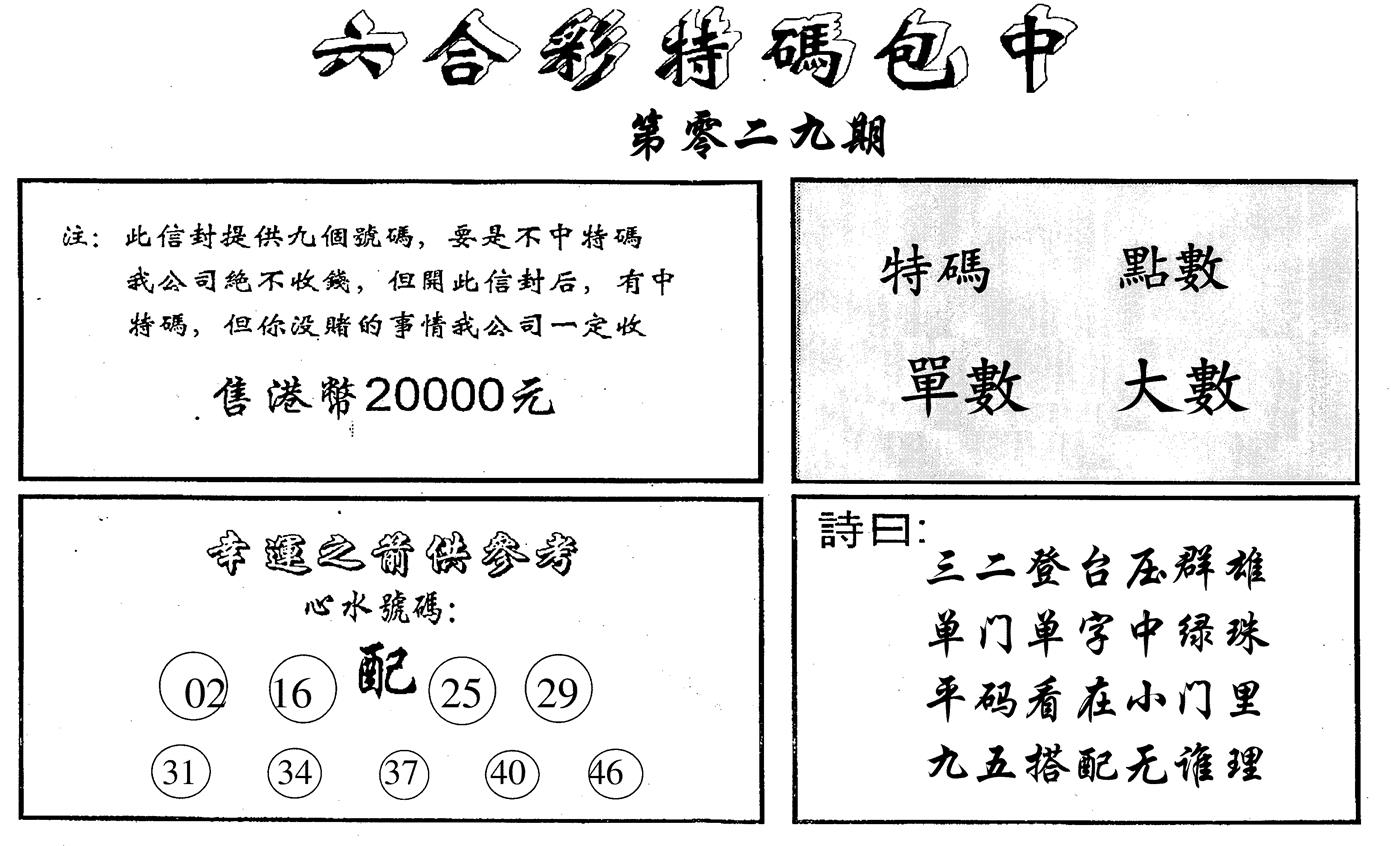 六合彩特碼包中
第零二九期
注：此信封提供九個號碼，要是不中特碼
我公司絕不收錢，但開此信封后，有中
特碼，但你没賭的事情我公司一定收
售港幣20000元
特碼 點數
單數 大數
幸運之箭供參考
心水號碼：
02 16 配 25 29
31 34 37 40 46
詩曰：
三二登台压群雄
单门单字中绿珠
平码看在小门里
九五搭配无谁理